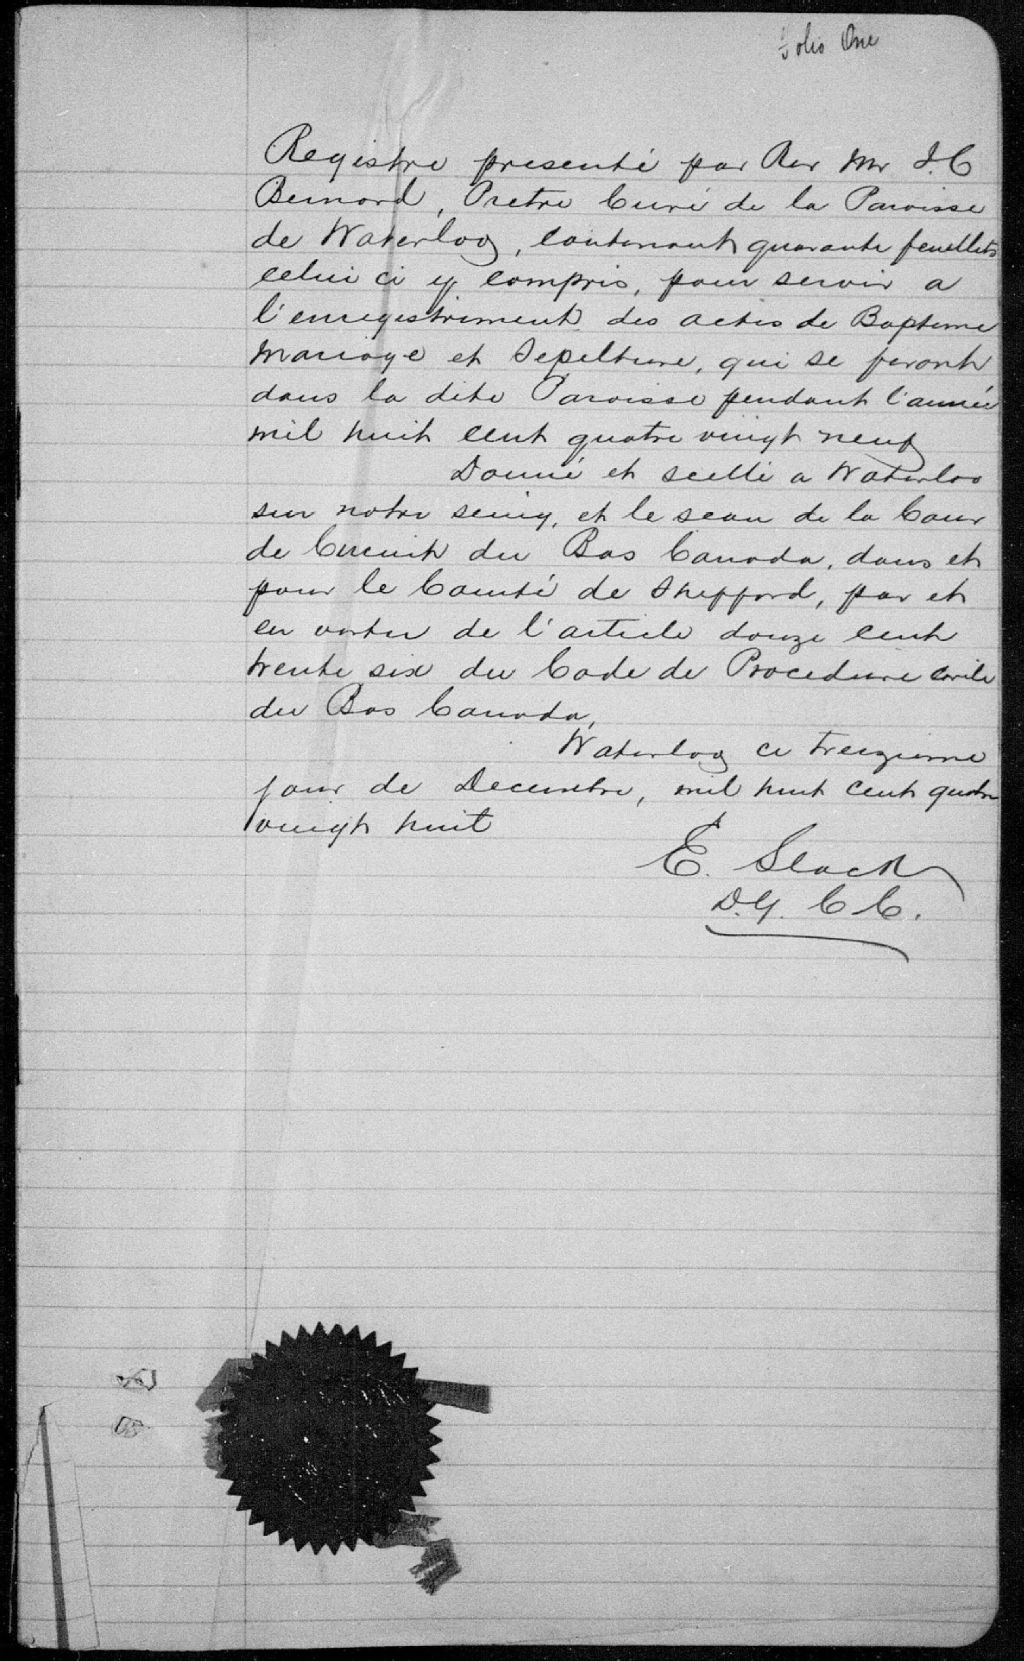 Folio One
Registre presenté par Rev Mr J.C
Bernard, Pretre Curé de la Paroisse
de Waterloo, contenant quarante feuillets
celui ci y compris, pour servir a
l'enregistrement des actes de Bapteme
Mariage et Sepelture, qui se feront
dans la dite Paroisse pendant l'année
mil huit cent quatre vingt neuf
Donné et scellé a Waterloo
sur notre seing, et le seau de la Cour
de Circuit du Bas Canada, dans et
pour le Comté de Shefford, par et
en vertu de l'article douze cent
trente six du Code de Procedure Civile
du Bas Canada,
Waterloo ce treizieme
jour de Decembre, mil huit cent quatre
vingt huit
E. Slack
D.G. C C.